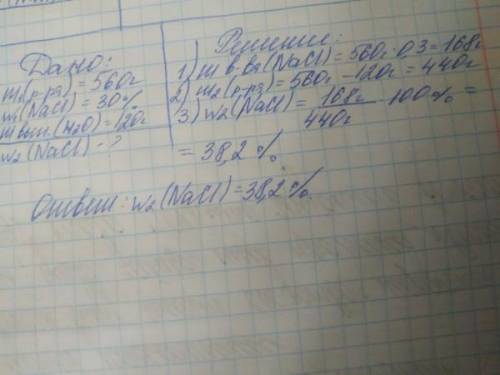 Дано:
m₁(р-ра) = 560г
w₁(NaCl) = 30%
m вып.(H₂O) = 120г
w₂(NaCl) - ?
Решение:
1) m в-ва(NaCl) = 560г · 0,3 = 168г
2) m₂(р-ра) = 560г - 120г = 440г
3) w₂(NaCl) = 168г / 440г · 100% =
= 38,2%
Ответ: w₂(NaCl) = 38,2%.